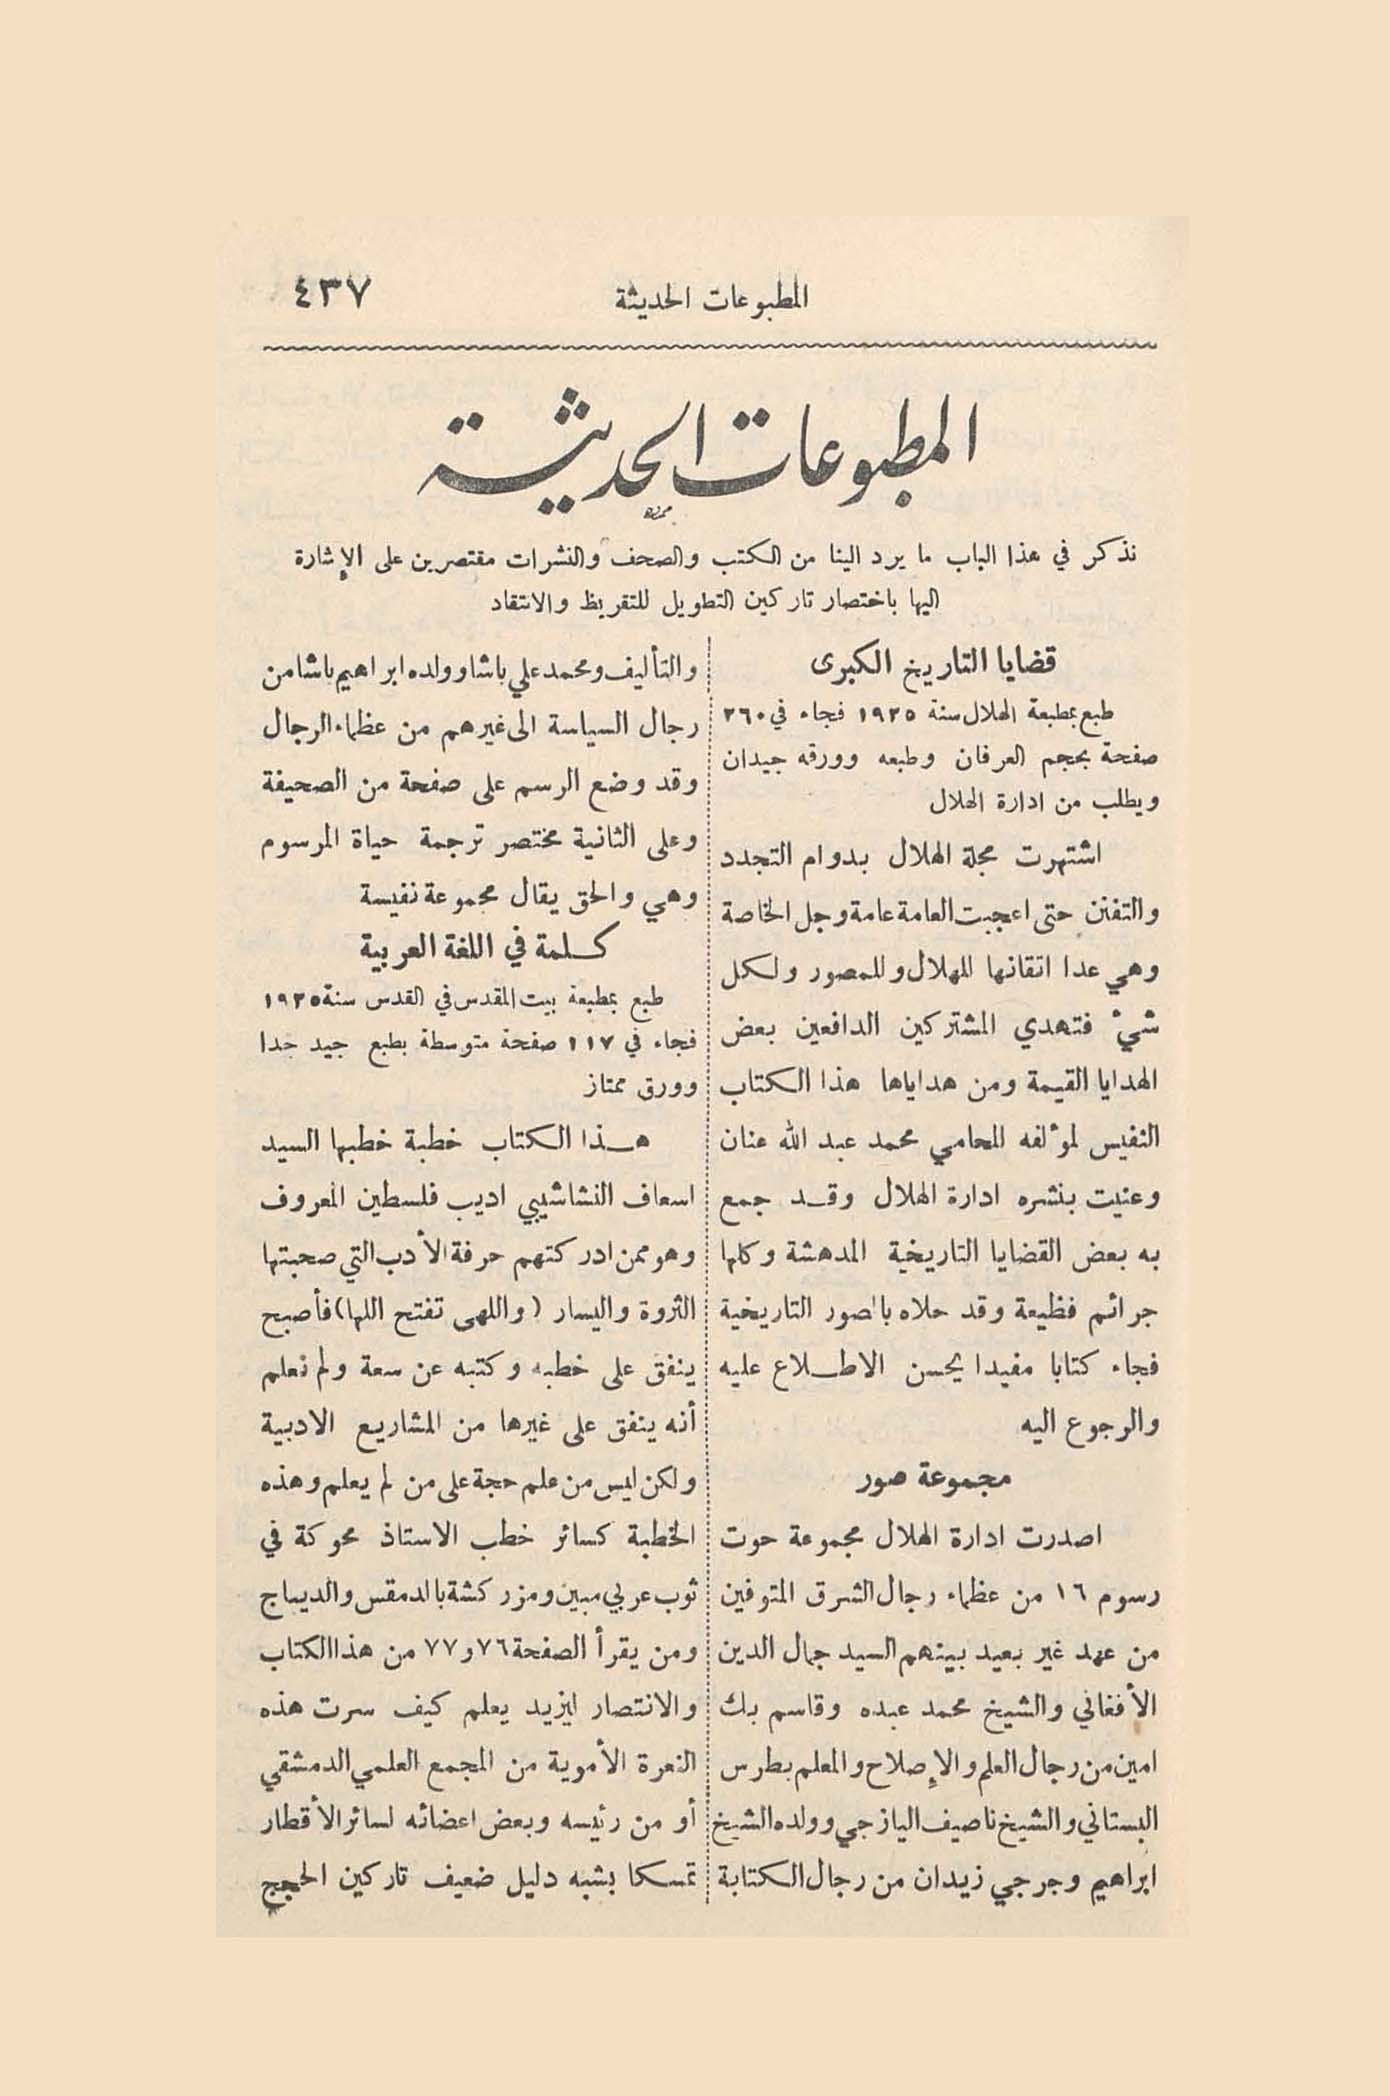 المطبوعات الحديثة
٤٣٧
المطبوعات الحديثة
نذكر في هذا الباب ما يرد الينا من الكتب والصحف والنشرات مقتصرين على الإشارة
اليها باختصار تاركين التطويل للتقريظ والانتقاد
قضايا التاريخ الكبرى
طبع بمطبعة الهلال سنة ١٩٢٥ فجاء في ٢٦٠
صفحة بحجم العرفان وطبعه وورقه جيدان
ويطلب من ادارة الهلال
اشتهرت مجلة الهلال بدوام التجدد
والتفنن حتى اعجبت العامة عامة وجل الخاصة
وهي عدا اتقانها للهلال وللمصور ولكل
شيء فتهدي المشتركين الدافعين بعض
الهدايا القيمة ومن هداياها هذا الكتاب
النفيس لمؤلفه المحامي محمد عبد الله عنان
وعنيت بنشره ادارة الهلال وقد جمع
به بعض القضايا التاريخية المدهشة وكلها
جرائم فظيعة وقد حلاه بالصور التاريخية
فجاء كتابا مفيدا يحسن الاطلاع عليه
والرجوع اليه
مجموعة صور
اصدرت ادارة الهلال مجموعة حوت
رسوم ١٦ من عظماء رجال الشرق المتوفين
من عهد غير بعيد بينهم السيد جمال الدين
الأفغاني والشيخ محمد عبده وقاسم بك
امين من رجال العلم والإصلاح والمعلم بطرس
البستاني والشيخ ناصيف اليازجي وولده الشيخ
ابراهيم وجرجي زيدان من رجال الكتابة
والتأليف ومحمد علي باشا وولده ابراهيم باشا من
رجال السياسة الى غيرهم من عظماء الرجال
وقد وضع الرسم على صفحة من الصحيفة
وعلى الثانية مختصر ترجمة حياة المرسوم
وهي والحق يقال مجموعة نفيسة
كلمة في اللغة العربية
طبع بمطبعة بيت المقدس في القدس سنة ١٩٢٥
فجاء في ١١٧ صفحة متوسطة بطبع جيد جدا
وورق ممتاز
هذا الكتاب خطبة خطبها السيد
اسعاف النشاشيبي اديب فلسطين المعروف
وهو ممن ادركتهم حرفة الأدب التي صحبتها
الثروة واليسار (واللهى تفتح اللها) فأصبح
ينفق على خطبه وكتبه عن سعة ولم نعلم
أنه ينفق على غيرها من المشاريع الادبية
ولكن ليس من علم حجة على من لم يعلم وهذه
الخطبة كسائر خطب الاستاذ محوكة في
ثوب عربي مبين ومزركشة بالدمقس والديباج
ومن يقرأ الصفحة ٧٦ و٧٧ من هذا الكتاب
والانتصار ليزيد يعلم كيف سرت هذه
النعرة الأموية من المجمع العلمي الدمشقي
أو من رئيسه وبعض اعضائه لسائر الأقطار
تمسكا بشبه دليل ضعيف تاركين الحجج